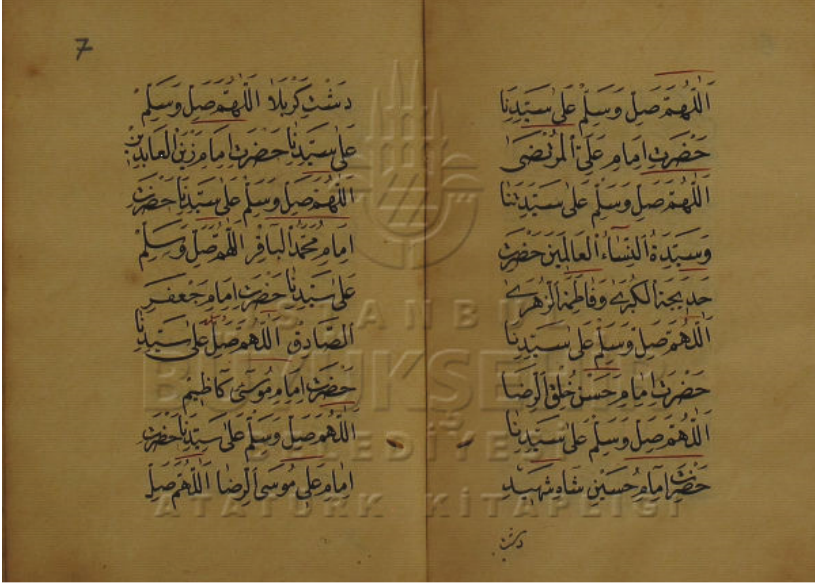 اَللّٰهُمَّ صَلِّ وَسَلِّمْ عَلٰى سَيِّدِنَا
حَضْرَتِ اِمَامِ عَلِىّ اَلْمُرْتَضٰى
اَللّٰهُمَّ صَلِّ وَسَلِّمْ عَلٰى سَيِّدَتِنَا
وَسَيِّدَةُ النِّسَاءُ الْعَالَمِينَ حَضْرَتِ
خَدِيجَةَ الْكُبْرٰى وَفَاطِمَةَ الزَّهْرٰى
اَللّٰهُمَّ صَلِّ وَسَلِّمْ عَلٰى سَيِّدِنَا
حَضْرَتِ اِمَامِ حَسَنْ خُلْقِ الرِّضَا
اَللّٰهُمَّ صَلِّ وَسَلِّمْ عَلٰى سَيِّدِنَا
حَضْرَتِ اِمَامِ حُسَيْنِ شَاهِ شَهِيدِ
دشت
7
دَشْتِ كَرْبَلَا اَللّٰهُمَّ صَلِّ وَسَلِّمْ
عَلٰى سَيِّدِنَا حَضْرَتِ اِمَامِ زَيْنَ الْعَابِدِينْ
اَللّٰهُمَّ صَلِّ وَسَلِّمْ عَلٰى سَيِّدِنَا حَضْرَتِ
اِمَامِ مُحَمَّدُ الْبَاقِرْ اَللّٰهُمَّ صَلِّ وَسَلِّمْ
عَلٰى سَيِّدِنَا حَضْرَتِ اِمَامِ جَعْفَرِ
الصَّادِقْ اَللّٰهُمَّ صَلِّ وسلم عَلٰى سَيِّدِنَا
حَضْرَتِ اِمَامِ مُوسٰى كَاظِيمْ
اَللّٰهُمَّ صَلِّ وَسَلِّمْ عَلٰى سَيِّدِنَا حَضْرَتِ
اِمَامِ عَلِى مُوسَى الرِّضَا اَللّٰهُمَّ صَلِّ
İSTANBUL
BÜYÜKŞEHİR
BELEDİYESİ
ATATÜRK KİTAPLIĞI